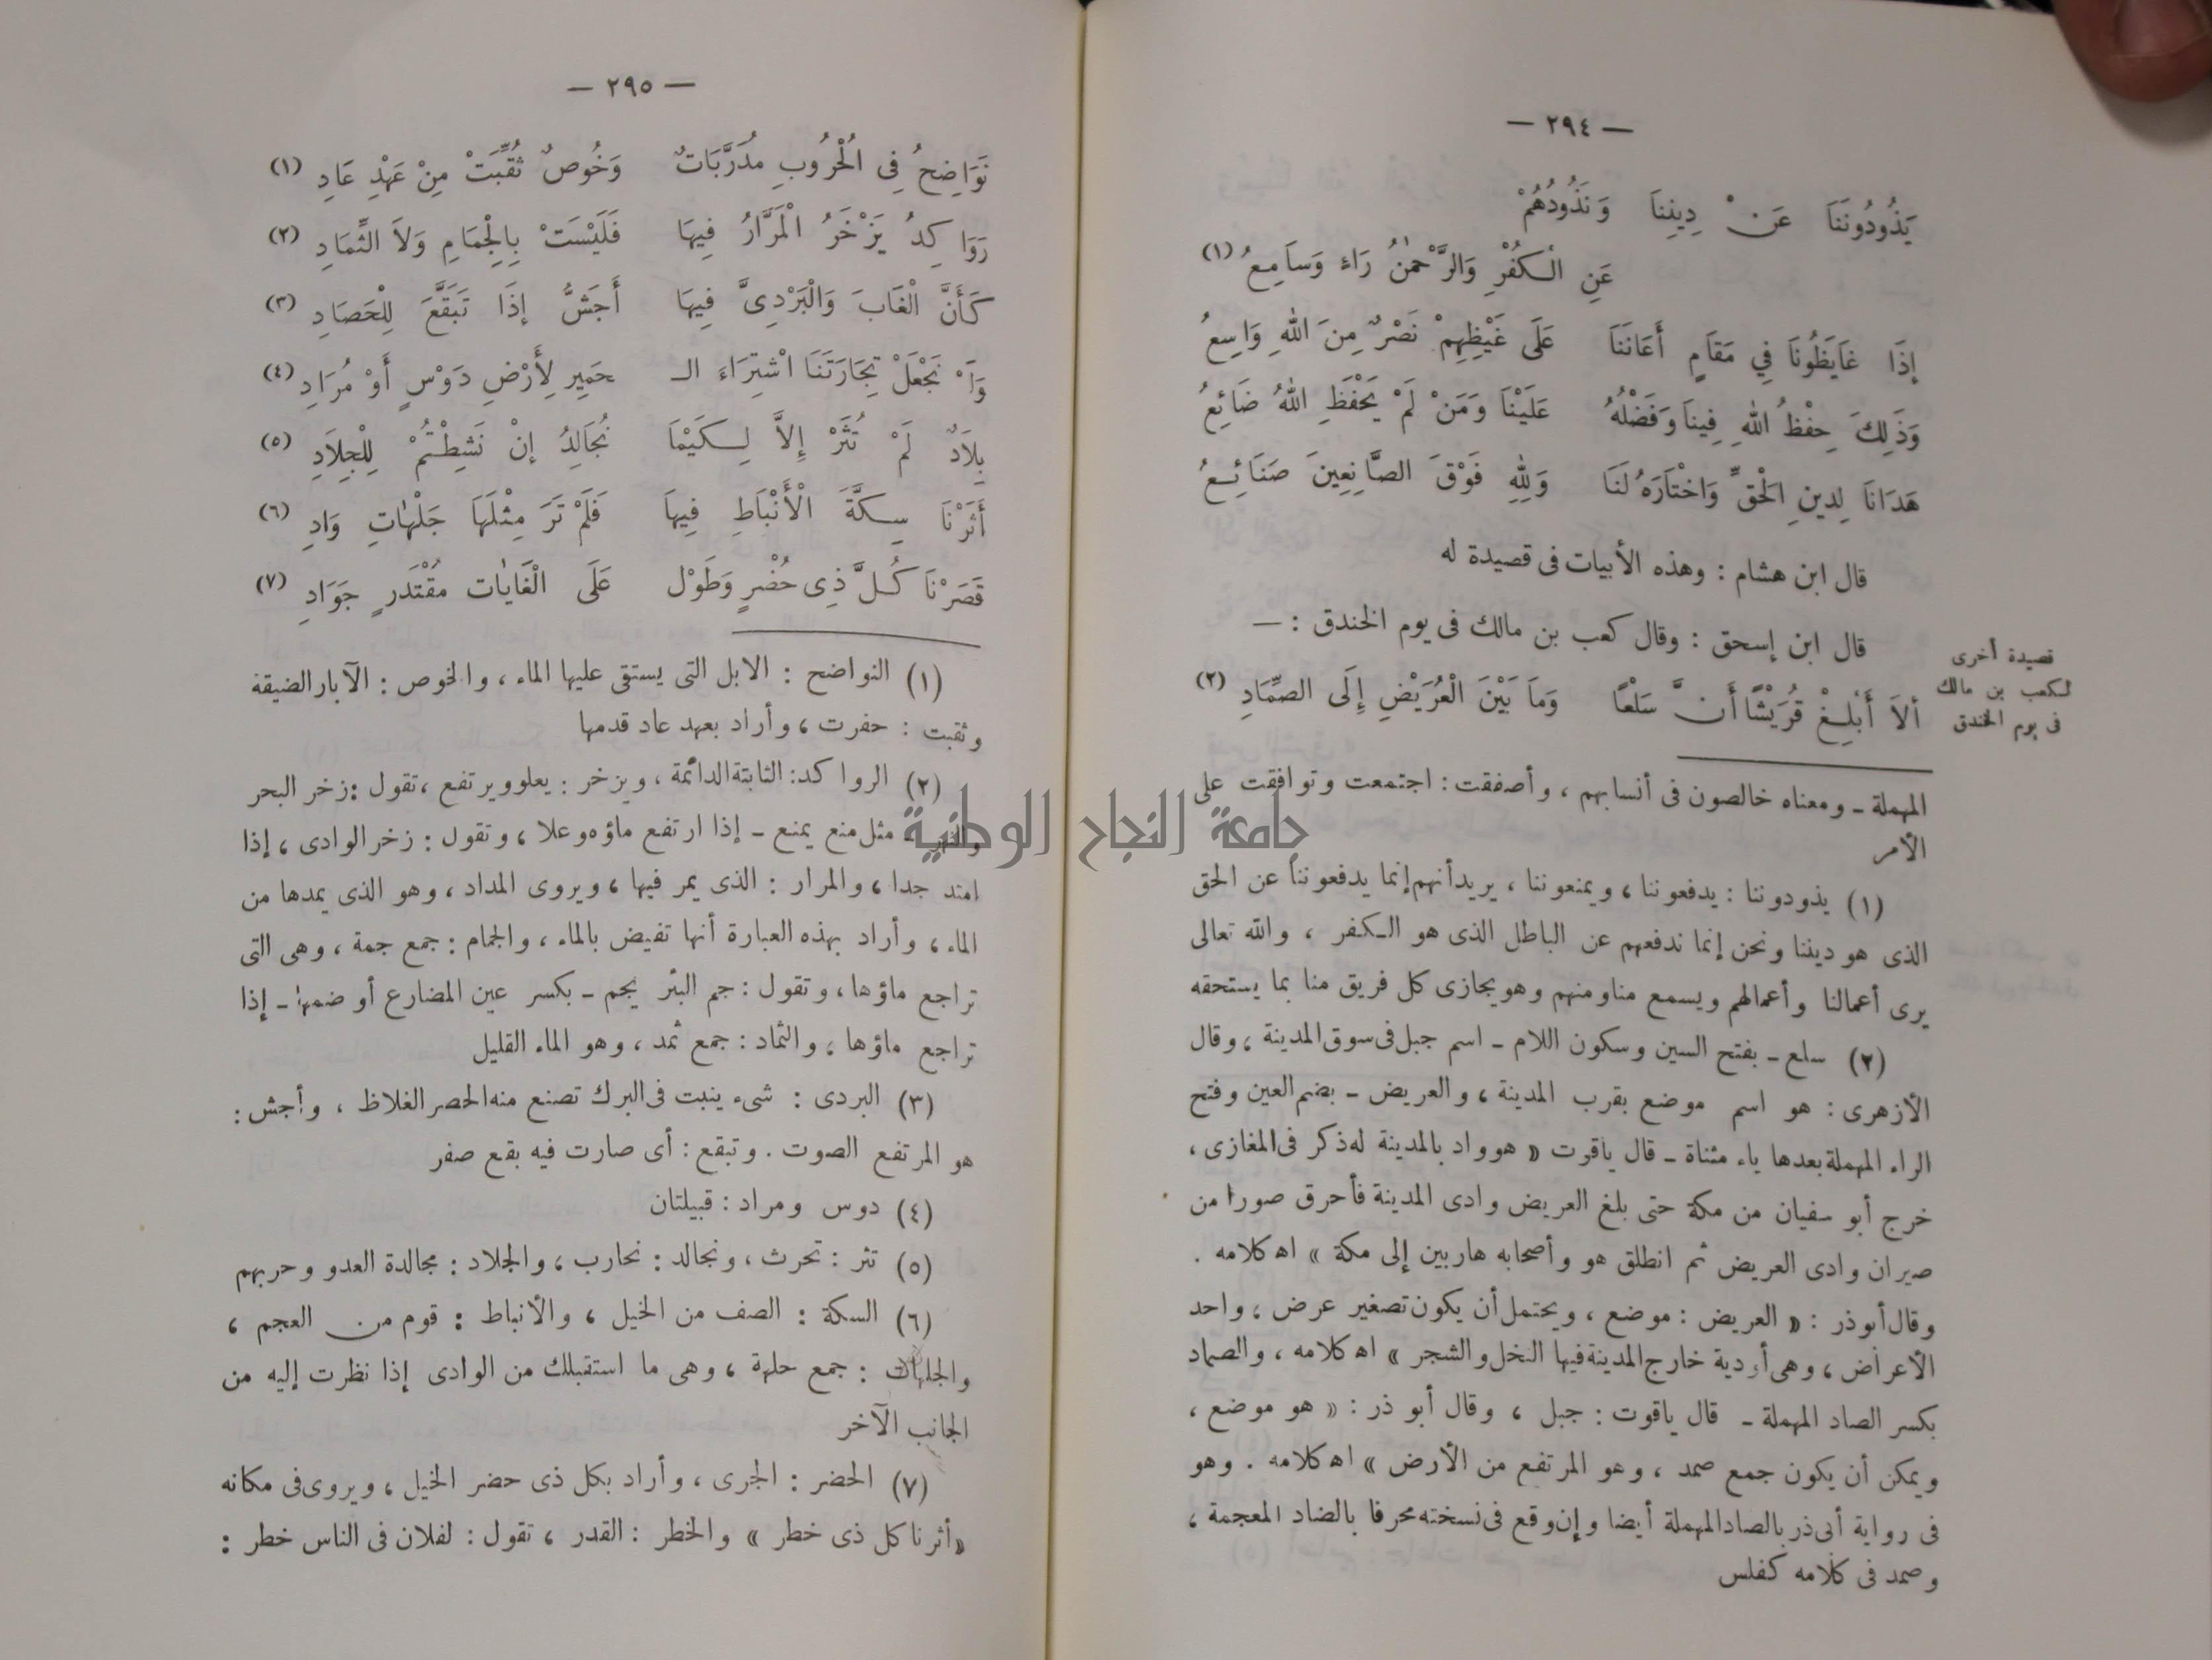 — ٢٩٤ —
يَذُودُونَنَا عَنْ دِينِنَا وَنَذُودُهُمْ
عَنِ الْكُفْرِ وَالرَّحْمٰنُ رَاءٍ وَسَامِعُ (١)
إِذَا غَايَظُونَا فِي مَقَامٍ أَعَانَنَا عَلَى غَيْظِهِمْ نَصْرٌ مِنَ اللهِ وَاسِعُ
وَذَلِكَ حِفْظُ اللهِ فِينَا وَفَضْلُهُ عَلَيْنَا وَمَنْ لَمْ يَحْفَظِ اللهُ ضَائِعُ
هَدَانَا لِدِينِ الْحَقِّ وَاخْتَارَهُ لَنَا وَلِلهِ فَوْقَ الصَّانِعِينَ صَنَائِعُ
قال ابن هشام : وهذه الأبيات فى قصيدة له
قال ابن إسحق : وقال كعب بن مالك فى يوم الخندق : —
قصيدة أخرى
لكعب بن مالك
فى يوم الخندق
أَلاَ أَبْلِغْ قُرَيْشًا أَنَّ سَلْعًا وَمَا بَيْنَ الْعُرَيْضِ إِلَى الصِّمَادِ (٢)
المهملة ــ ومعناه خالصون فى أنسابهم ، وأصفقت : اجتمعت وتوافقت على
الأمر
(١) يذودوننا : يدفعوننا ، ويمنعوننا ، يريد أنهم إنما يدفعوننا عن الحق
الذى هو ديننا ونحن إنما ندفعهم عن الباطل الذى هو الكفر ، والله تعالى
يرى أعمالنا وأعمالهم ويسمع منا ومنهم وهو يجازى كل فريق منا بما يستحقه
(٢) سلع ــ بفتح السين وسكون اللام ــ اسم جبل فى سوق المدينة ، وقال
الأزهرى : هو اسم موضع بقرب المدينة ، والعريض ــ بضم العين وفتح
الراء المهملة بعدها ياء مثناة ــ قال ياقوت « هو واد بالمدينة له ذكر فى المغازى ،
خرج أبو سفيان من مكة حتى بلغ العريض وادى المدينة فأحرق صورا من
صيران وادى العريض ثم انطلق هو وأصحابه هاربين إلى مكة » اه كلامه .
وقال أبو ذر : « العريض : موضع ، ويحتمل أن يكون تصغير عرض ، واحد
الأعراض ، وهى أودية خارج المدينة فيها النخل والشجر » اه كلامه ، والصماد
بكسر الصاد المهملة ــ قال ياقوت : جبل ، وقال أبو ذر : « هو موضع ،
ويمكن أن يكون جمع صمد ، وهو المرتفع من الأرض » اه كلامه . وهو
فى رواية أبى ذر بالصاد المهملة أيضا وإن وقع فى نسخته محرفا بالضاد المعجمة ،
وصمد فى كلامه كفلس
— ٢٩٥ —
نَوَاضِحُ فِى الْحُرُوبِ مُدَرَّبَاتٌ وَخُوصٌ ثُقِّبَتْ مِنْ عَهْدِ عَادِ (١)
رَوَاكِدُ يَزْخَرُ الْمَرَّارُ فِيهَا فَلَيْسَتْ بِالْجِمَامِ وَلاَ الثِّمَادِ (٢)
كَأَنَّ الْغَابَ وَالْبَرْدِىَّ فِيهَا أَجَشُّ إِذَا تَبَقَّعَ لِلْحَصَادِ (٣)
وَلَمْ نَجْعَلْ تِجَارَتَنَا اشْتِرَاءَ الـ حَمِيرِ لِأَرْضِ دَوْسٍ أَوْ مُرَادِ (٤)
بِلاَدٌ لَمْ تُثَرْ إِلاَّ لِكَيْمَا نُجَالِدُ إِنْ نَشِطْتُمْ لِلْجِلاَدِ (٥)
أَثَرْنَا سِكَّةَ الْأَنْبَاطِ فِيهَا فَلَمْ تَرَ مِثْلَهَا جَلْهَاتِ وَادِ (٦)
قَصَرْنَا كُلَّ ذِى حُضْرٍ وَطَوْلٍ عَلَى الْغَايَاتِ مُقْتَدِرٍ جَوَادِ (٧)
(١) النواضح : الابل التى يستقى عليها الماء ، والخوص : الآبار الضيقة
وثقبت : حفرت ، وأراد بعهد عاد قدمها
(٢) الرواكد : الثابتة الدائمة ، ويزخر : يعلو ويرتفع ، تقول : زخر البحر
والنهر ــ مثل منع يمنع ــ إذا ارتفع ماؤه وعلا ، وتقول : زخر الوادى ، إذا
امتد جدا ، والمرار : الذى يمر فيها ، ويروى المداد ، وهو الذى يمدها من
الماء ، وأراد بهذه العبارة أنها تفيض بالماء ، والجمام : جمع جمة ، وهى التى
تراجع ماؤها ، وتقول : جم البئر يجم ــ بكسر عين المضارع أو ضمها ــ إذا
تراجع ماؤها ، والثماد : جمع ثمد ، وهو الماء القليل
(٣) البردى : شىء ينبت فى البرك تصنع منه الحصر الغلاظ ، وأجش :
هو المرتفع الصوت . وتبقع : أى صارت فيه بقع صفر
(٤) دوس ومراد : قبيلتان
(٥) تثر : تحرث ، ونجالد : نحارب ، والجلاد : مجالدة العدو وحربهم
(٦) السكة : الصف من الخيل ، والأنباط : قوم من العجم ،
والجلهات : جمع جلهة ، وهى ما استقبلك من الوادى إذا نظرت إليه من
الجانب الآخر
(٧) الحضر : الجرى ، وأراد بكل ذى حضر الخيل ، ويروى فى مكانه
« أثرنا كل ذى خطر » والخطر : القدر ، تقول : لفلان فى الناس خطر :
جامعة النجاح الوطنية